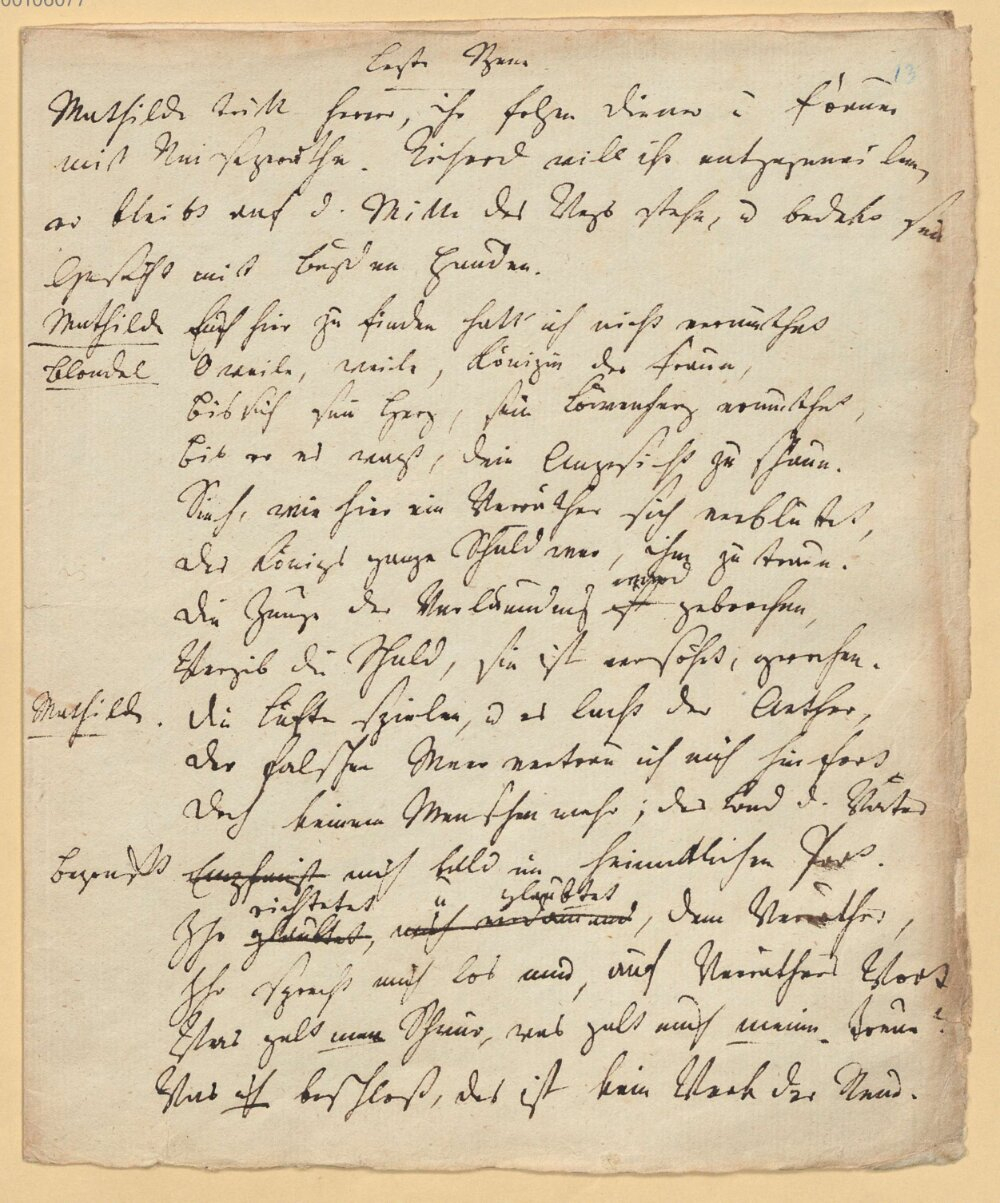 00106077
13
Letzte Szene
Mathilde tritt hervor, ihr folgen Diener u Frauen
mit Reisegeräthe. Richard will ihr entgegeneilen,
er bleibt auf d. Mitte des Wegs stehn, u bedekt sein
Gesicht mit beyden Händen.
Mathilde Euch hier zu finden hatt' ich nicht vermuthet
Blondel O weile, weile, Königin der Frauen,
bis sich sein Herz, sein Löwenherz ermuthet,
bis er es wagt, dein Angesicht zu schaun.
Sieh, wie hier ein Verräther sich verblutet,
des Königs ganze Schuld war, ihm zu traun.
ward
Die Zunge der Verläumdung ist gebrochen,
Vergib die Schuld, sie ist versöhnt, gerochen.
Mathilde. Die Lüfte spielen, u es lacht der Aether,
Dem falschen Meer vertrau ich mich hinfort
Doch keinem Menschen mehr; das Land d. Väter
begrüßt Empfängt mich bald im heimatlichen Port.
richtetet u glaubtet
Ihr glaubtet, mich verdammend, dem Verräther,
Ihr sprecht mich los nun, auf Verräthers Wort
Was galt mein Schwur, was galt euch meine Treue?
Was ich beschloß, das ist kein Werk der Reue.